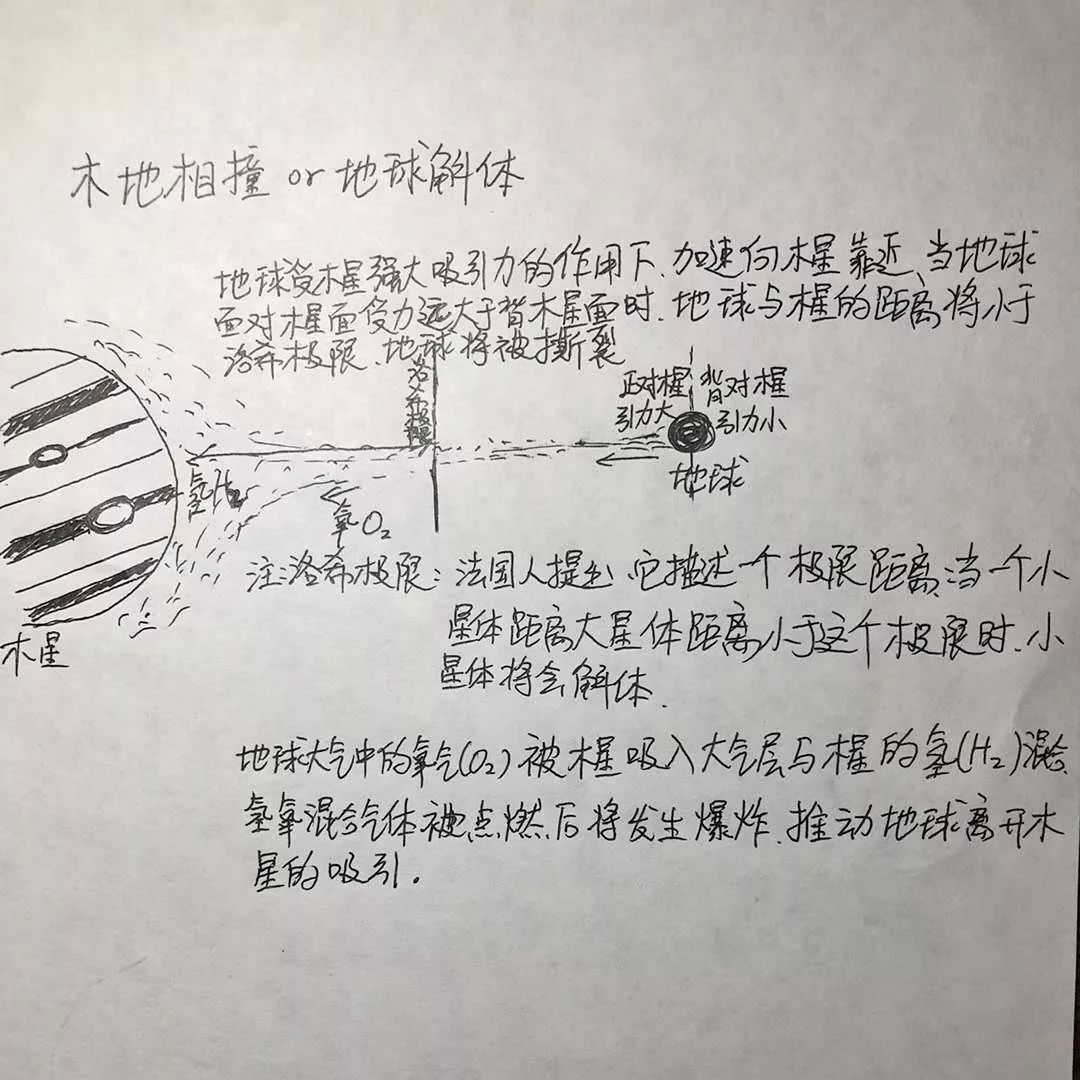 木地相撞 or 地球解体
地球受木星强大吸引力的作用下,加速向木星靠近、当地球
面对木星面受力远大于背木星面时,地球与木星的距离将小于
洛希极限、地球将被撕裂
洛希极限
正对木星
引力大
背对木星
引力小
地球
氢H₂
氧O₂
木星
注:洛希极限:法国人提出,它描述一个极限距离,当一个小
星体距离大星体距离小于这个极限时,小
星体将会解体.
地球大气中的氧气(O₂)被木星吸入大气层与木星的氢(H₂)混合
氢氧混合气体被点燃后将发生爆炸,推动地球离开木
星的吸引.